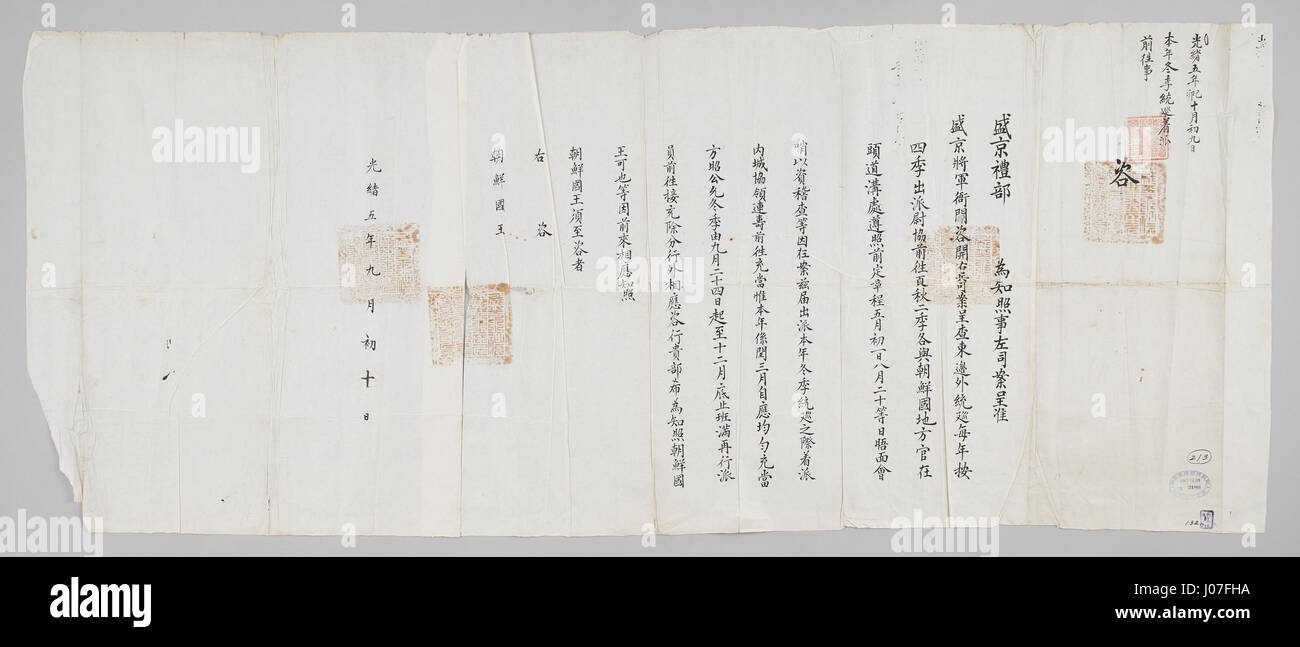 光緒五年九月十月初九日
本年冬季統巡著派
前往事
咨
盛京禮部 為知照事左司案呈准
盛京將軍衙門咨開右司案呈查東邊外統巡每年按
四季出派尉協前往夏秋二季各與朝鮮國地方官在
頭道溝處遵照前定章程五月初一日八月二十等日晤面會
哨以資稽查等因在案茲届出派本年冬季統巡之際著派
內城協領連壽前往充當惟本年係閏三月自應均勻充當
方昭公允冬季由九月二十四日起至十二月底止班滿再行派
員前往接充除分行外相應咨行貴部希為知照朝鮮國
王可也等因前來相應知照
朝鮮國王須至咨者
右咨
朝鮮國王
光緒五年九月初十日
213
132
alamy
a
alamy
www.alamy.com
Image ID: J07FHA
www.alamy.com